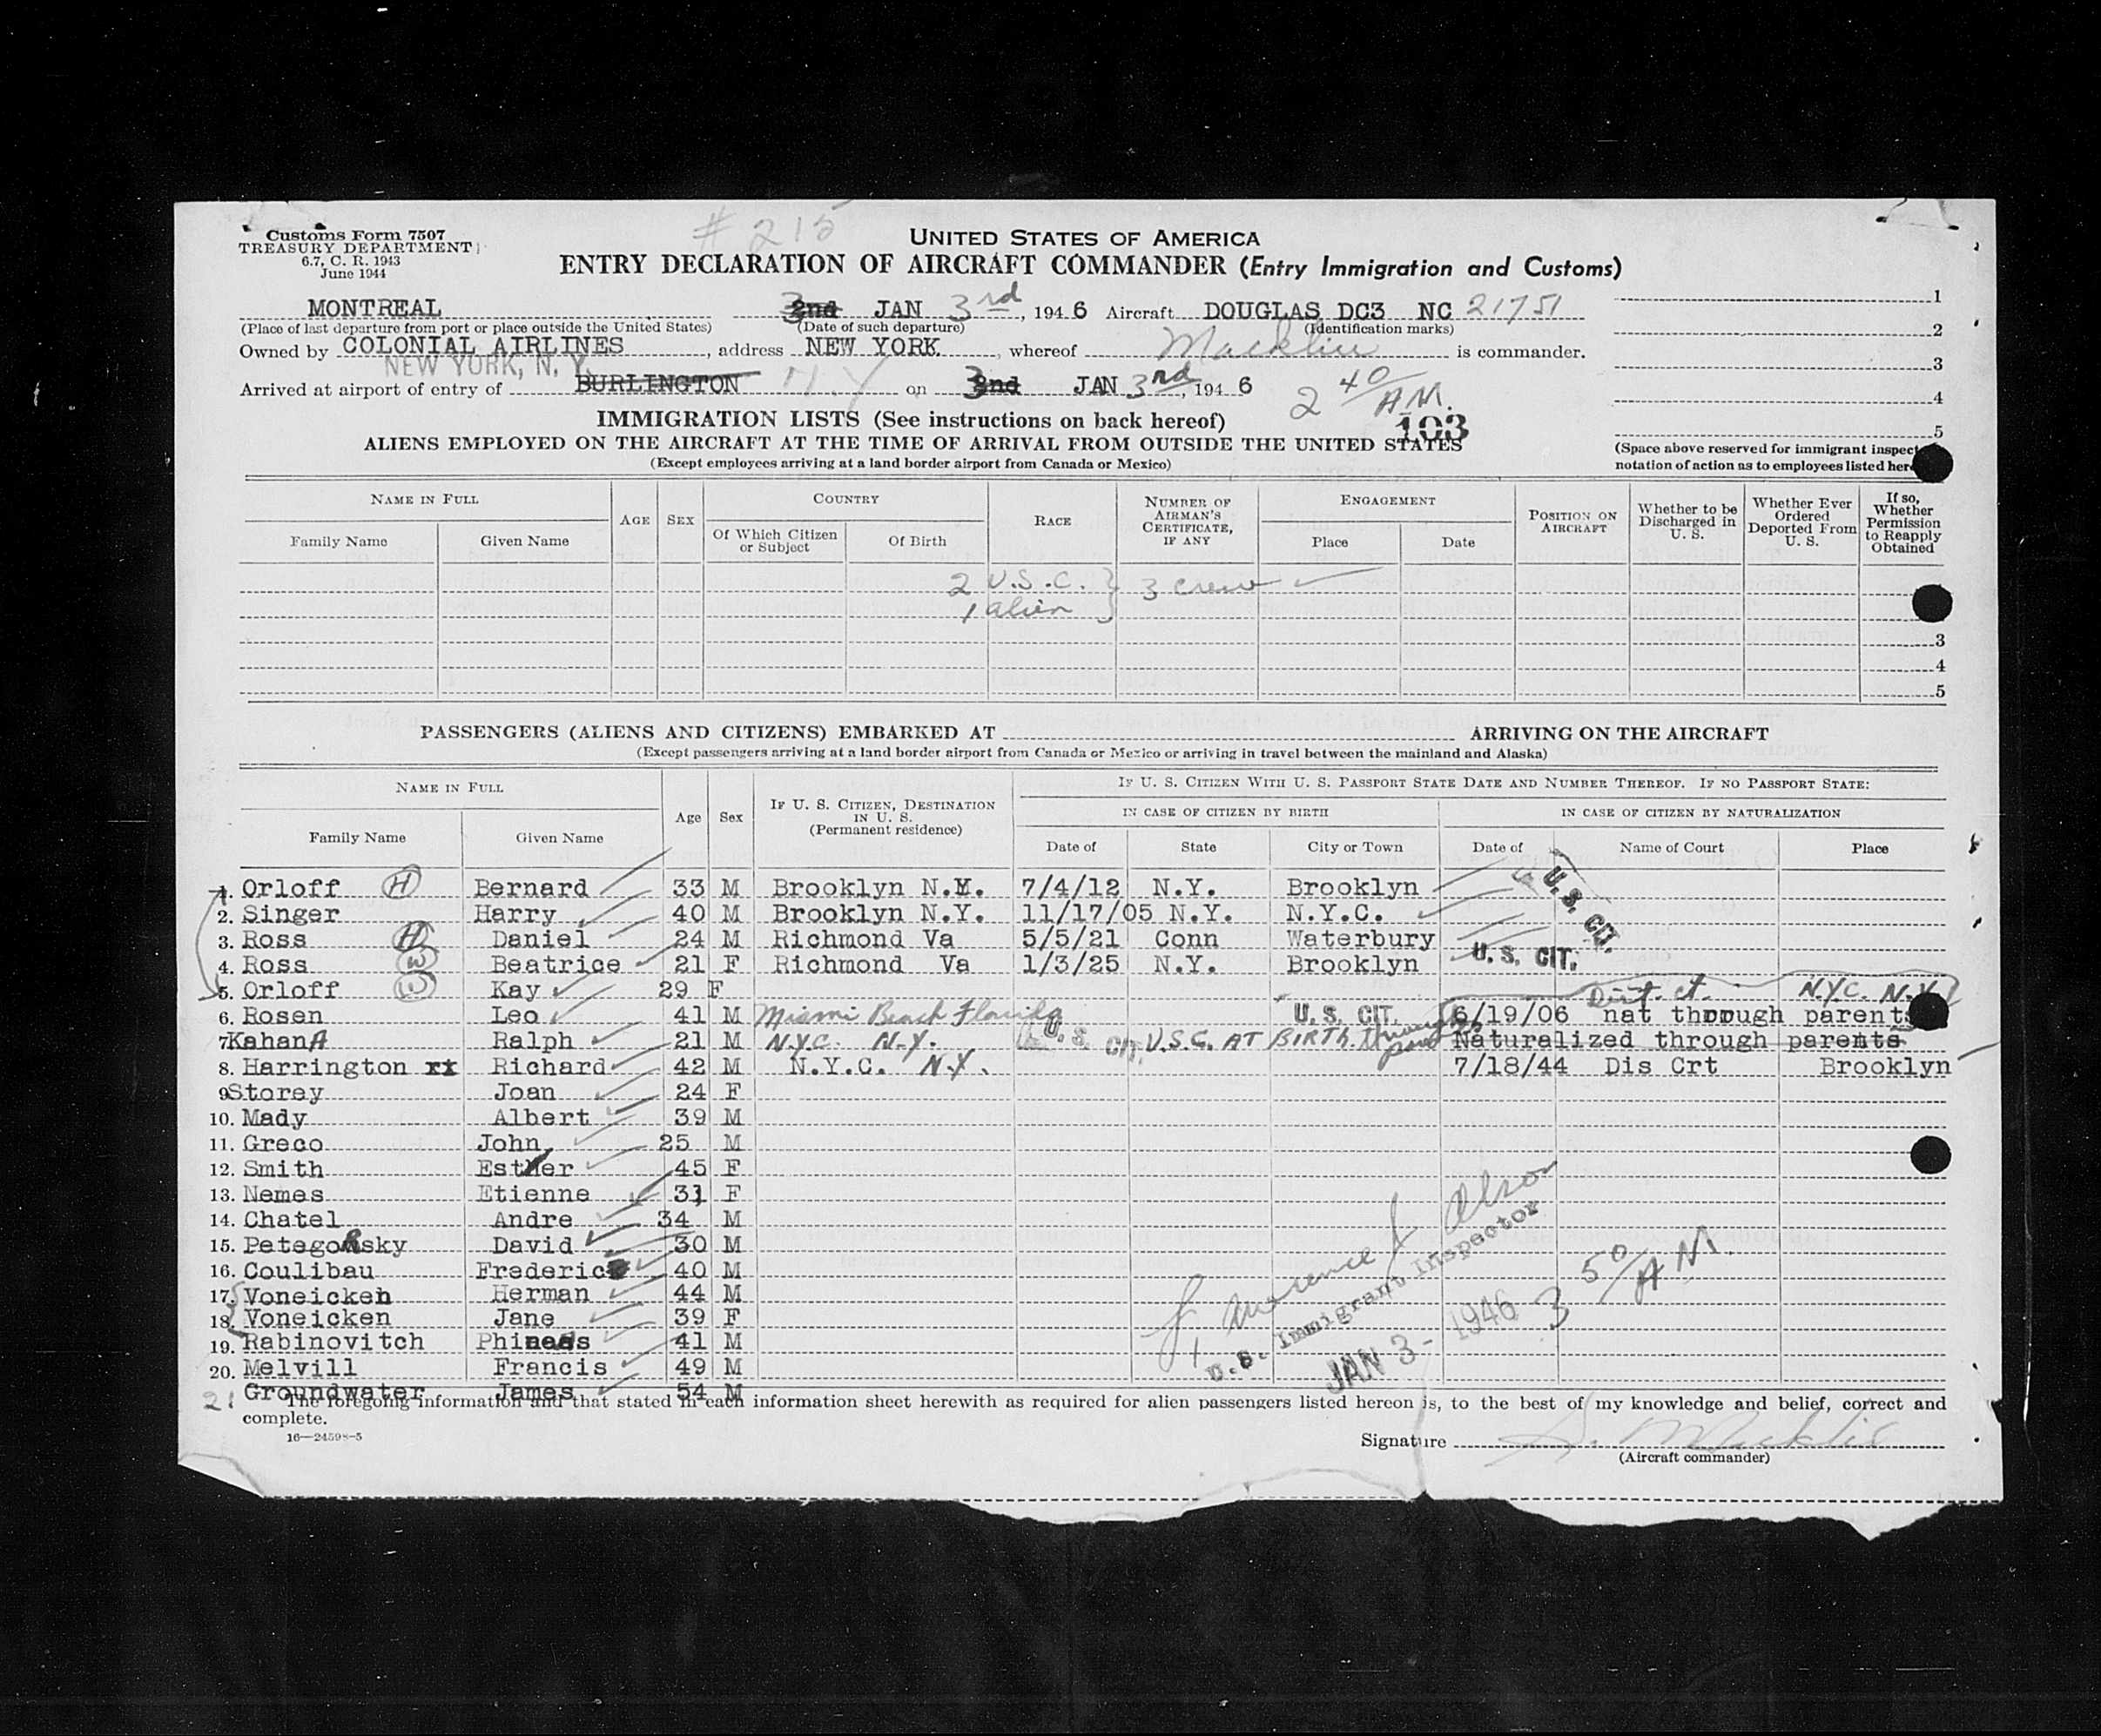 # 215
Customs Form 7507
TREASURY DEPARTMENT
6.7, C. R. 1943
June 1944
UNITED STATES OF AMERICA
ENTRY DECLARATION OF AIRCRAFT COMMANDER (Entry Immigration and Customs)
MONTREAL 2nd 3 JAN 3rd, 1946 Aircraft DOUGLAS DC3 NC 21751
(Place of last departure from port or place outside the United States) (Date of such departure) (Identification marks)
Owned by COLONIAL AIRLINES, address NEW YORK, whereof Macklin is commander.
NEW YORK, N. Y.
Arrived at airport of entry of BURLINGTON N.Y on 2nd 3 JAN 3rd, 1946 2 40/AM.
1
2
3
4
5
(Space above reserved for immigrant inspect
notation of action as to employees listed her
IMMIGRATION LISTS (See instructions on back hereof)
103
ALIENS EMPLOYED ON THE AIRCRAFT AT THE TIME OF ARRIVAL FROM OUTSIDE THE UNITED STATES
(Except employees arriving at a land border airport from Canada or Mexico)
NAME IN FULL
Family Name Given Name
AGE SEX
COUNTRY
Of Which Citizen or Subject Of Birth
RACE
NUMBER OF AIRMAN'S CERTIFICATE, IF ANY
ENGAGEMENT
Place Date
POSITION ON AIRCRAFT
Whether to be Discharged in U. S.
Whether Ever Ordered Deported From U. S.
If so, Whether Permission to Reapply Obtained
2 U.S.C. } 3 crew
1 alien
3
4
5
PASSENGERS (ALIENS AND CITIZENS) EMBARKED AT ARRIVING ON THE AIRCRAFT
(Except passengers arriving at a land border airport from Canada or Mexico or arriving in travel between the mainland and Alaska)
NAME IN FULL
Family Name Given Name
Age Sex
IF U. S. CITIZEN, DESTINATION IN U. S.
(Permanent residence)
IF U. S. CITIZEN WITH U. S. PASSPORT STATE DATE AND NUMBER THEREOF. IF NO PASSPORT STATE:
IN CASE OF CITIZEN BY BIRTH IN CASE OF CITIZEN BY NATURALIZATION
Date of State City or Town Date of Name of Court Place
1. Orloff H Bernard 33 M Brooklyn N.Y. 7/4/12 N.Y. Brooklyn U. S. CIT.
2. Singer Harry 40 M Brooklyn N.Y. 11/17/05 N.Y. N.Y.C.
3. Ross H Daniel 24 M Richmond Va 5/5/21 Conn Waterbury
4. Ross W Beatrice 21 F Richmond Va 1/3/25 N.Y. Brooklyn U. S. CIT.
5. Orloff W Kay 29 F Dist. ct. N.Y.C. N.Y.
6. Rosen Leo 41 M Miami Beach Florida U. S. CIT. 6/19/06 nat through parents
7. KahanA Ralph 21 M N.Y.C. N.Y. U. S. CIT. U.S.C. AT BIRTH through Naturalized through parents
8. Harrington Richard 42 M N.Y.C. N.Y. 7/18/44 Dis Crt Brooklyn
9. Storey Joan 24 F
10. Mady Albert 39 M
11. Greco John 25 M
12. Smith Esther 45 F
13. Nemes Etienne 31 F
14. Chatel Andre 34 M
15. PetegoRsky David 30 M
16. Coulibau Frederic 40 M
17. Voneicken Herman 44 M
18. Voneicken Jane 39 F
19. Rabinovitch Phineas 41 M
20. Melvill Francis 49 M
21 Groundwater James 54 M
U. S. Immigrant Inspector
JAN 3 - 1946 3 50/AM.
The foregoing information and that stated in each information sheet herewith as required for alien passengers listed hereon is, to the best of my knowledge and belief, correct and
complete.
16—24598-5
Signature S. Macklin
(Aircraft commander)